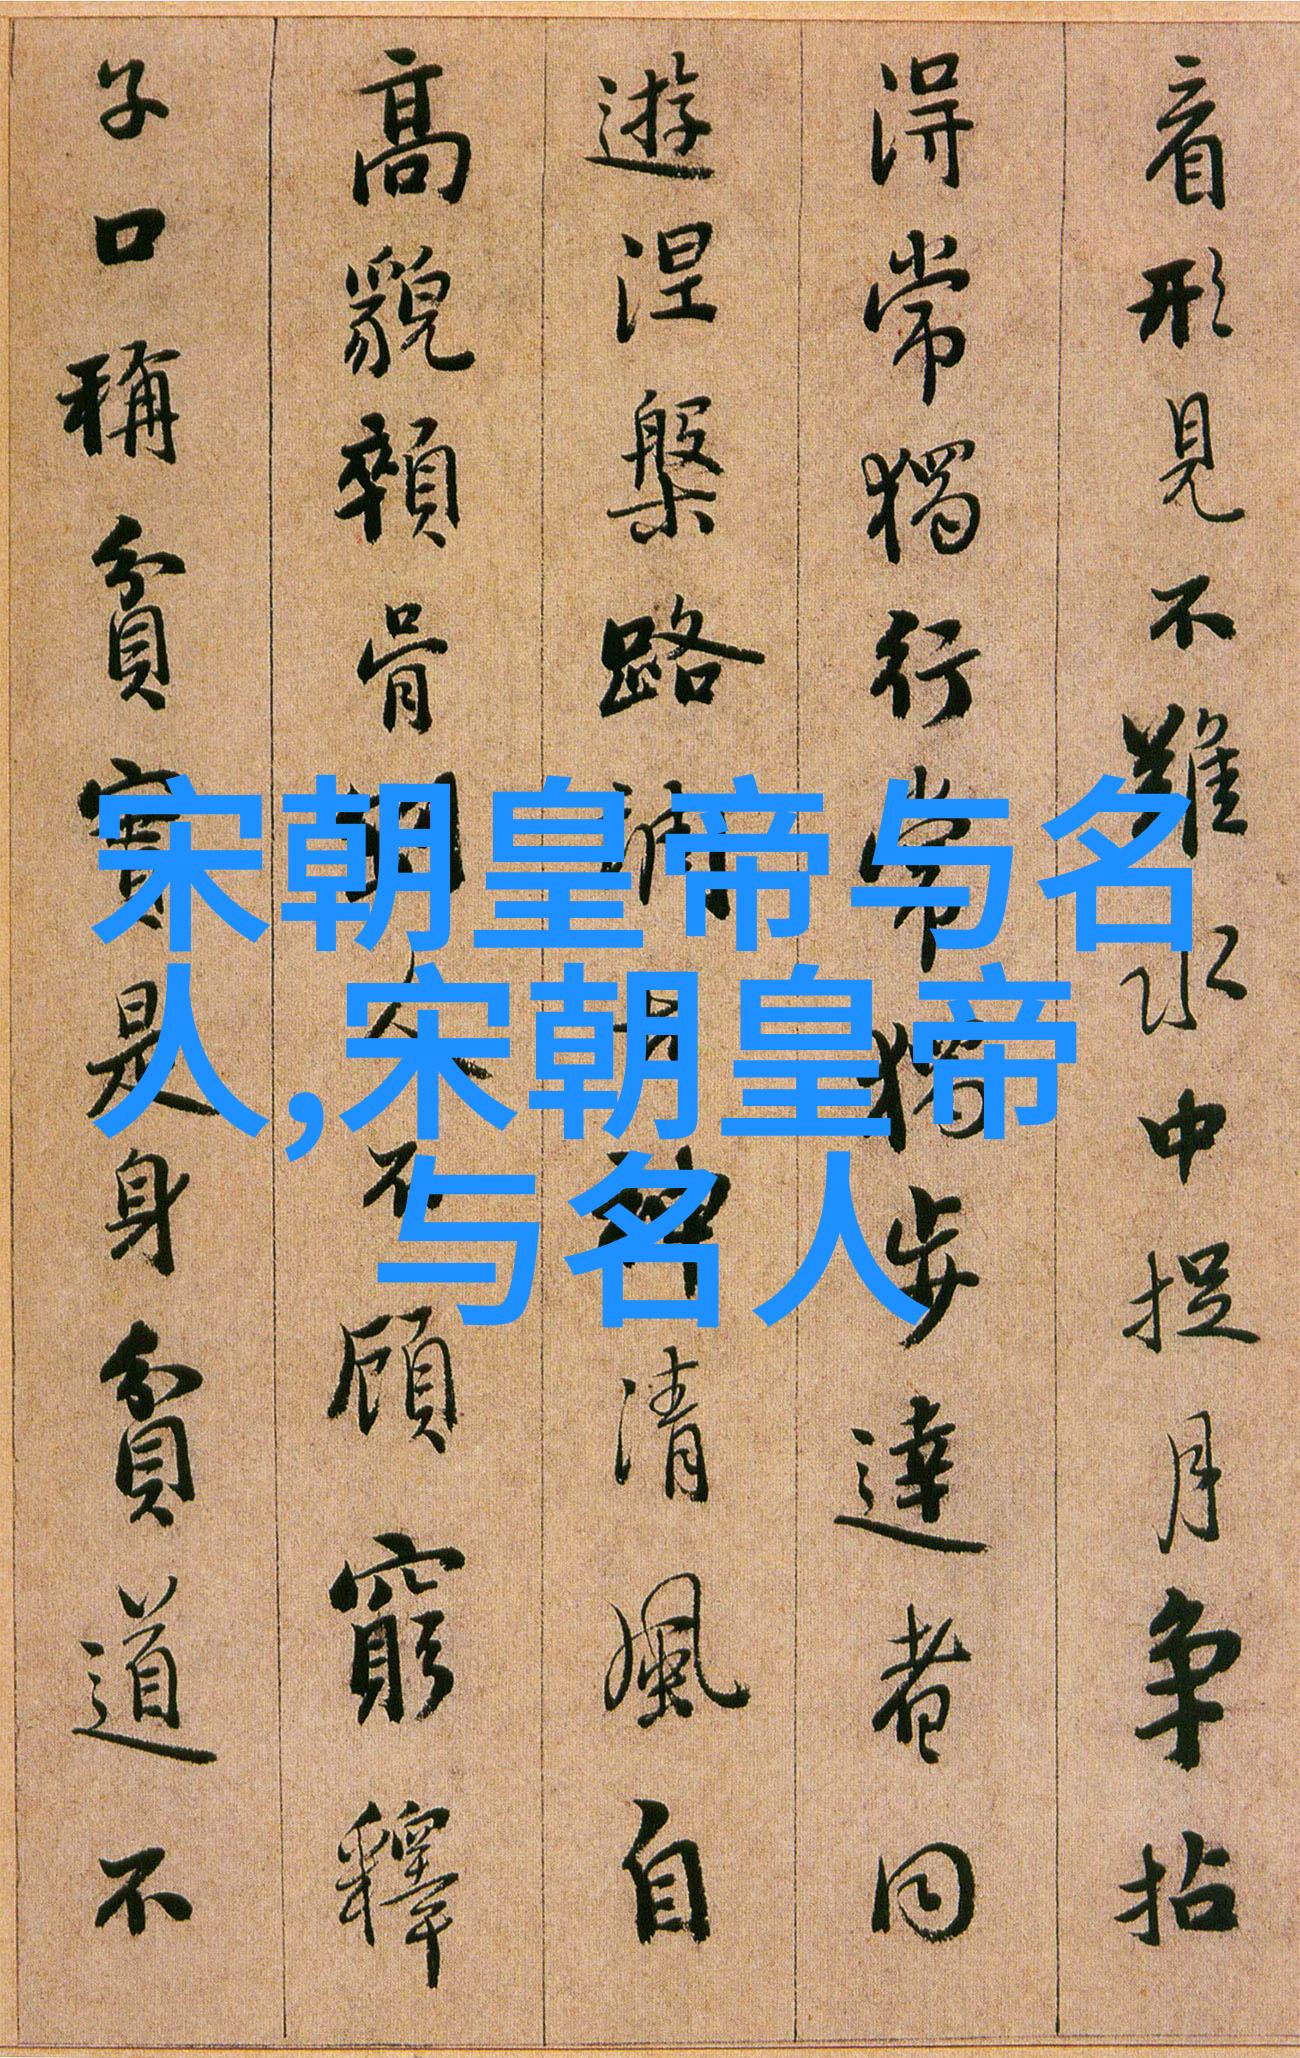 看形見不難水中捉月爭拈
得常獨行常獨步達者同
遊涅槃路調古神清風自
高貌顇骨剛人不顧窮釋
子口稱貧實是身貧道不
宋朝皇帝与名
人,宋朝皇帝
与名人